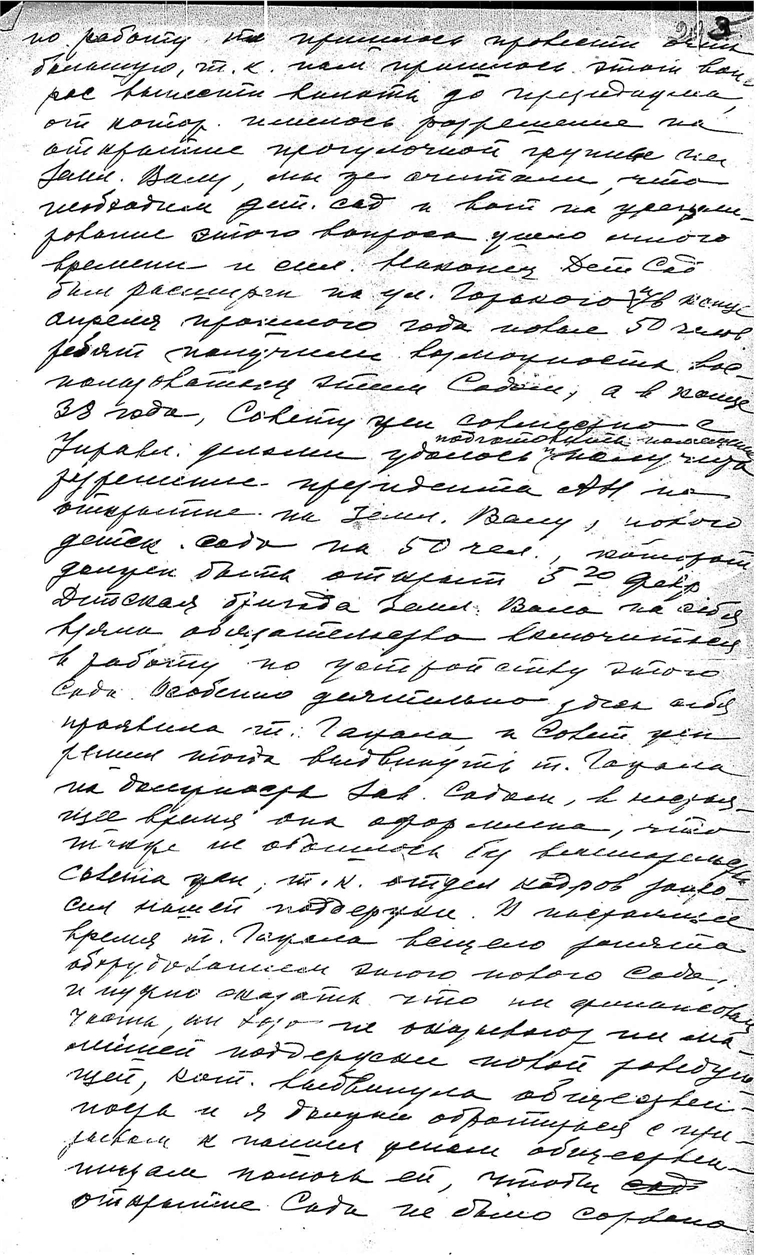 3
но работу нам пришлось провести очень
большую, т.к. нам пришлось этот воп-
рос вынести вплоть до президиума,
от котор. имелось разрешение на
открытие прогулочной группы на
Земл. Валу, мы же считали, что
необходим дет. сад и вот на урегули-
рование этого вопроса ушло много
времени и сил. Наконец Дет Сад
был расширен на ул. Горького и в конце
апреля прошлого года новые 50 челов.
ребят получили возможность вос-
пользоваться этим Садом, а в конце
38 года, Совету жен совместно с
Управл. делами удалось подготовить помещение и получить
разрешение президента АН на
открытие на Земл. Валу, нового
детск. сада на 50 чел., который
должен быть открыт 5го февр.
Детская бригада Земл. Вала на себя
взяла обязательство включиться
в работу по устройству этого
Сада. Особенно деятельно здесь себя
проявила т. и Совет жен
решил тогда выдвинуть т.
на должность Зав. Садом, в настоя-
щее время она оформлена, что
также не обошлось бы вмешательства
Совета жен, т.к. отдел кадров запро-
сил нашей поддержки. В настоящее
время т. всецело занята
оборудованием этого нового Сада,
и нужно сказать что ни финансовая
часть, ни не оказывают ни ма-
лейшей поддержки новой заведую-
щей, кот. выдвинула общественность
и я должна обратиться с при-
зывом к нашим женам общественни-
цам помочь ей, чтобы
открытие Сада не было сорвано.